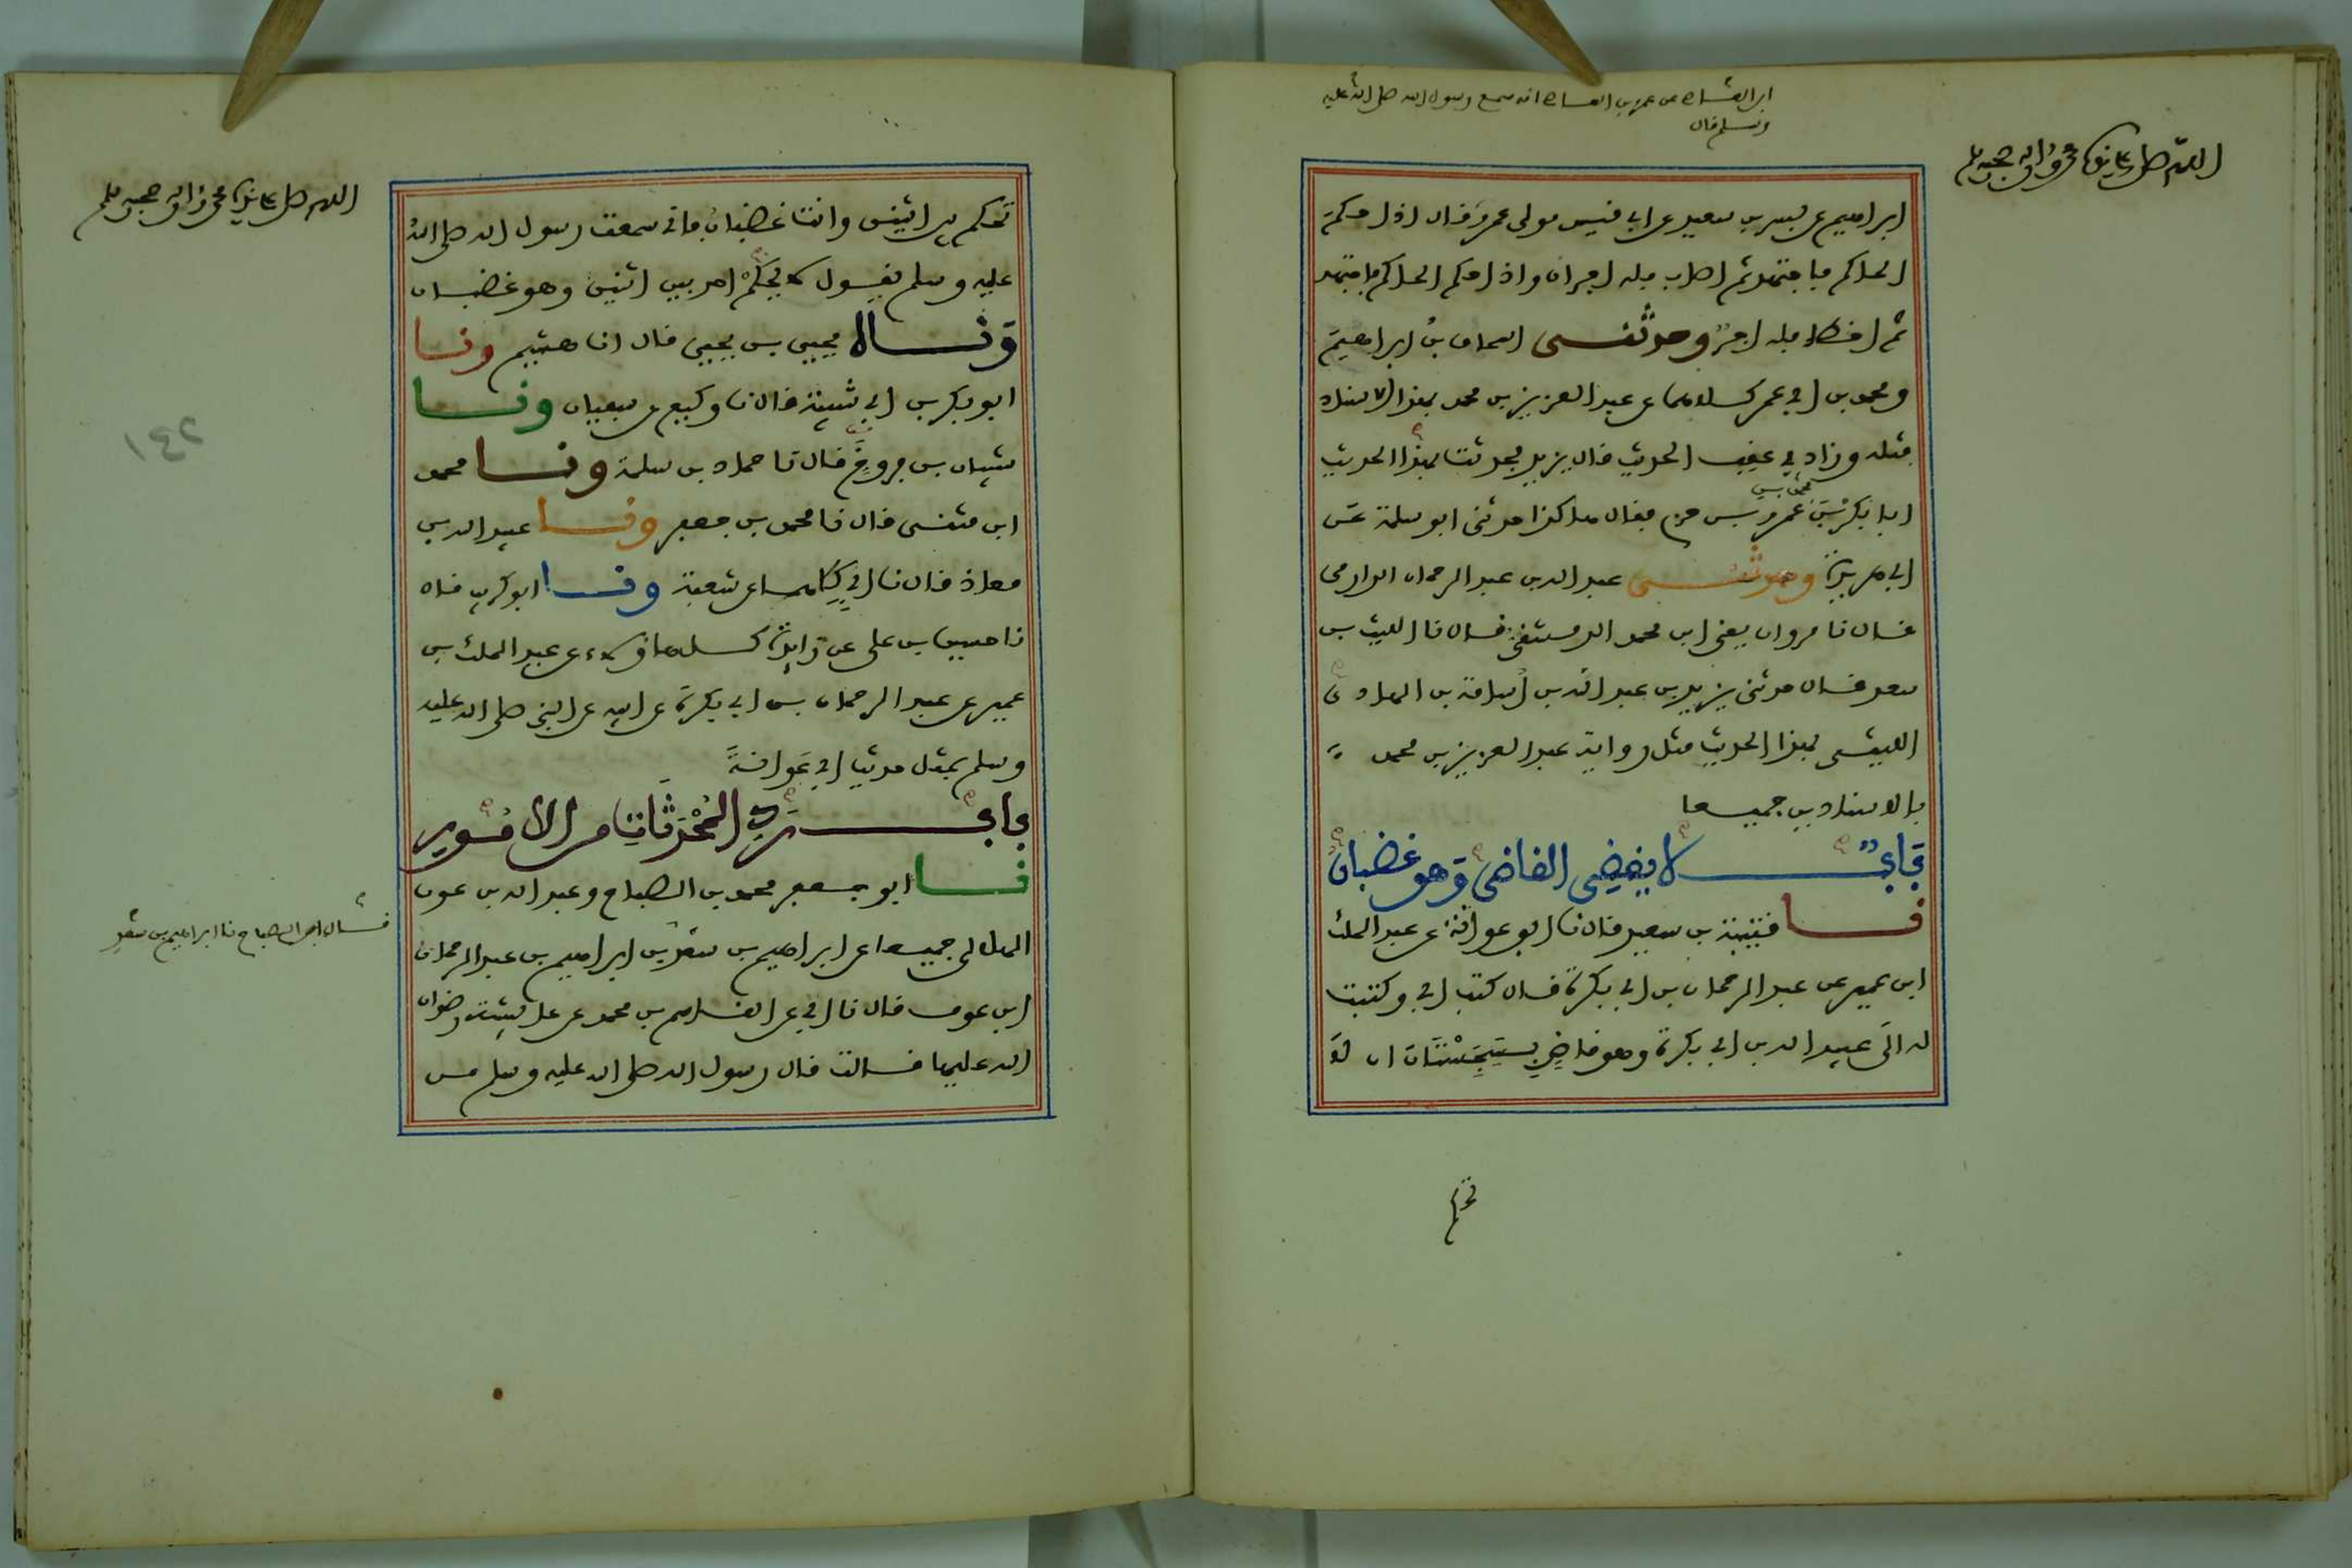 ابن العاص عن عمرو بن العاص انه سمع رسول الله صلى الله عليه
وسلم قال
اللهم صل على سيدنا محمد وءاله وصحبه وسلم
ابراهيم عن بسر بن سعيد عن ابي قيس مولى عمرو قال اذا حكم
الحاكم فاجتهد ثم اصاب فله اجران واذا حكم الحاكم فاجتهد
ثم اخطا فله اجر وحدثنى اسحاق بن ابراهيم
ومحمد بن ابي عمر كلاهما عن عبد العزيز بن محمد بهذا الاسناد
مثله وزاد في عقب الحديث قال يزيد فحدثت بهذا الحديث
ابا بكر بن محمد بن عمرو بن حزم فقال هاكذا حدثنى ابو سلمة عن
ابي هريرة وحدثنى عبد الله بن عبد الرحمان الدارمى
قال نا مروان يعنى ابن محمد الدمشقى قال نا الليث بن
سعد قال حدثنى يزيد بن عبد الله بن اسامة بن الهاد
الليثى بهذا الحديث مثل رواية عبد العزيز بن محمد
بالاسنادين جميعا
باب لا يقضى القاضى وهو غضبان
نا قتيبة بن سعيد قال نا ابو عوانة عن عبد الملك
ابن عمير عن عبد الرحمان بن ابي بكرة قال كتب ابي وكتبت
له الى عبيد الله بن ابي بكرة وهو قاض بسجستان ان لا
تحكم
اللهم صل على سيدنا محمد وءاله وصحبه وسلم
تحكم بين اثنين وانت غضبان فانى سمعت رسول الله صلى الله
عليه وسلم يقول لا يحكم احد بين اثنين وهو غضبان
وناه يحيى بن يحيى قال انا هشيم ونا
ابو بكر بن ابي شيبة قال نا وكيع عن سفيان ونا
شيبان بن فروخ قال نا حماد بن سلمة ونا محمد
ابن مثنى قال نا محمد بن جعفر ونا عبيد الله بن
معاذ قال نا ابي كلاهما عن شعبة ونا ابو كريب قال
نا حسين بن على عن زايدة كل هاؤلاء عن عبد الملك بن
عمير عن عبد الرحمان بن ابي بكرة عن ابيه عن النبى صلى الله عليه
وسلم بمثل حديث ابي عوانة
باب رد المحدثات من الامور
نا ابو جعفر محمد بن الصباح وعبد الله بن عون
الهلالى جميعا عن ابراهيم بن سعد بن ابراهيم بن عبد الرحمان
ابن عوف قال نا ابي عن القاسم بن محمد عن عايشة رضوان
الله عليها قالت قال رسول الله صلى الله عليه وسلم من
قال ابن الصباح نا ابراهيم بن سعد
٢٤١